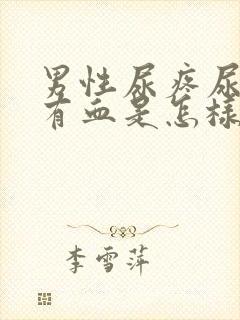 男性尿疼尿
有血是怎样
李雪萍